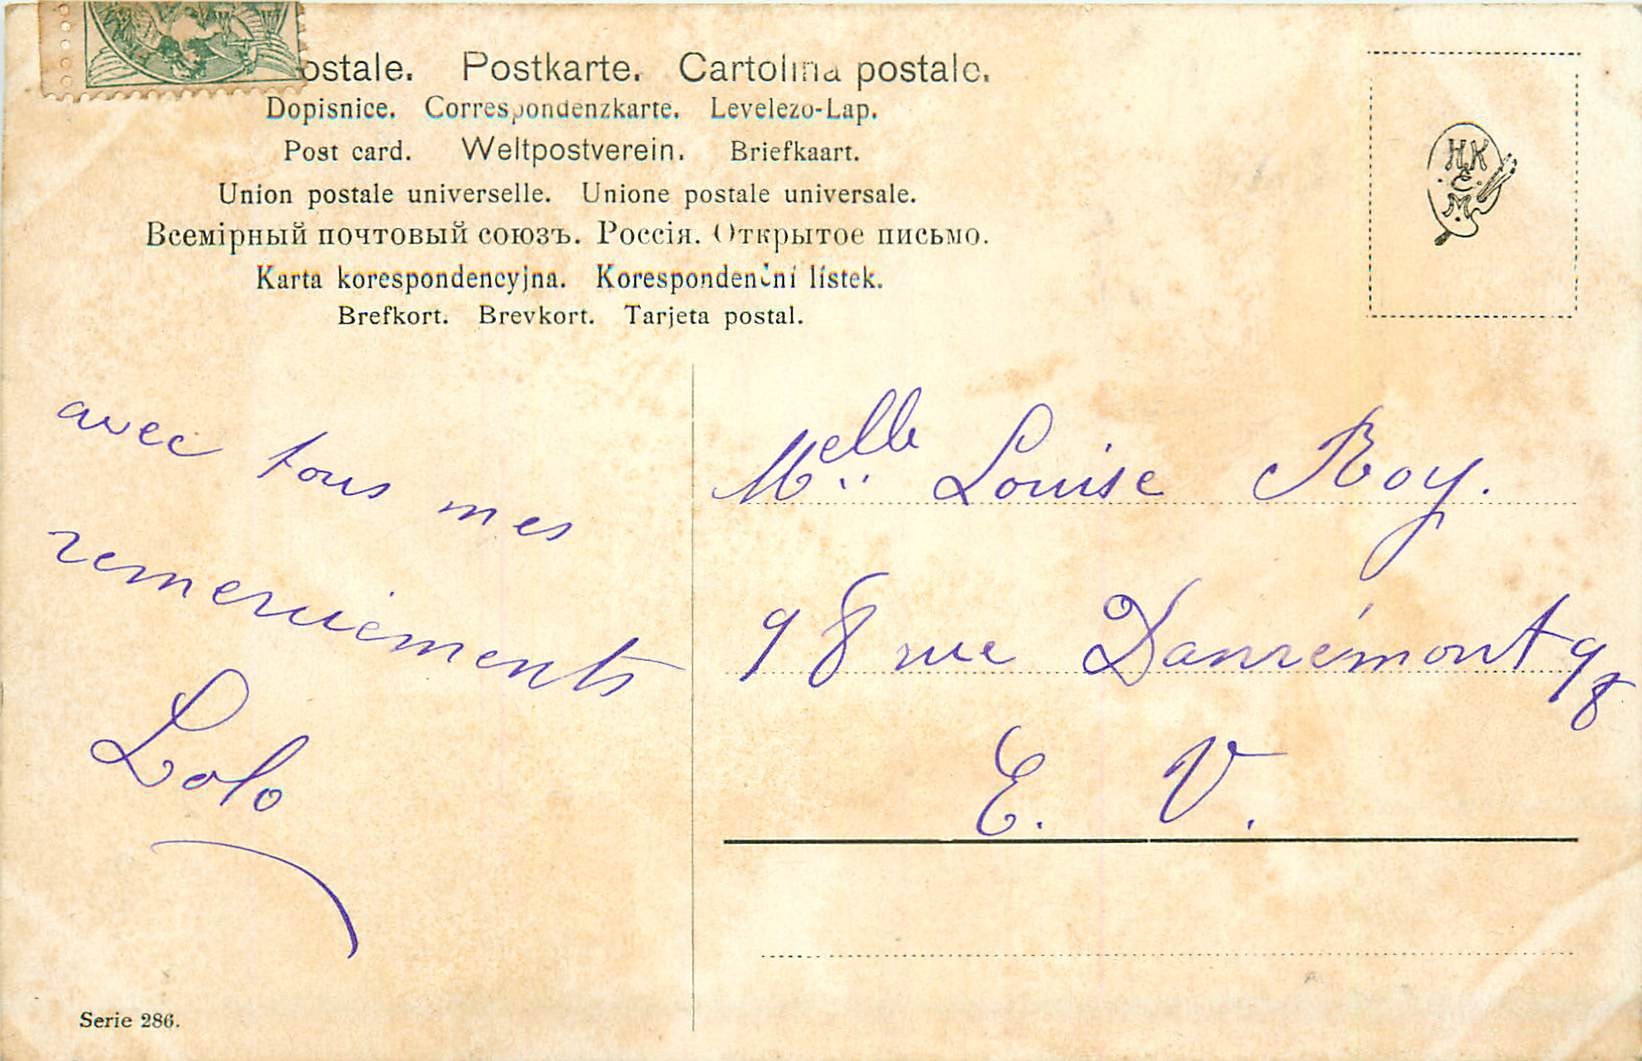 ostale. Postkarte. Cartolina postale.
Dopisnice. Correspondenzkarte. Levelezo-Lap.
Post card. Weltpostverein. Briefkaart.
Union postale universelle. Unione postale universale.
Всемірный почтовый союзъ. Россія. Открытое письмо.
Karta korespondencyjna. Korespondenční lístek.
Brefkort. Brevkort. Tarjeta postal.
HK
E.
M.
avec tous mes
remerciements
Lolo
Melle Louise Roy.
98 rue Danrémont 98
E. V.
Serie 286.